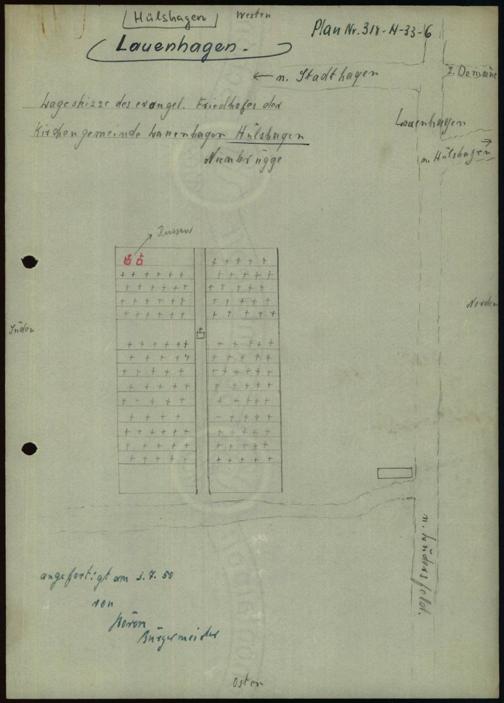 Hülshagen
Westen
Plan Nr. 318-H-33-16
Lauenhagen.
← n. Stadthagen
z. Domäne
Lageskizze des evangel. Friedhofes der
Kirchengemeinde Lauenhagen Hülshagen
Nienbrügge
Lauenhagen
n. Hülshagen →
Russen
Norden
Süden
n. Lüdersfeld.
angefertigt am 3.7.50
von
Bürgermeister
Osten